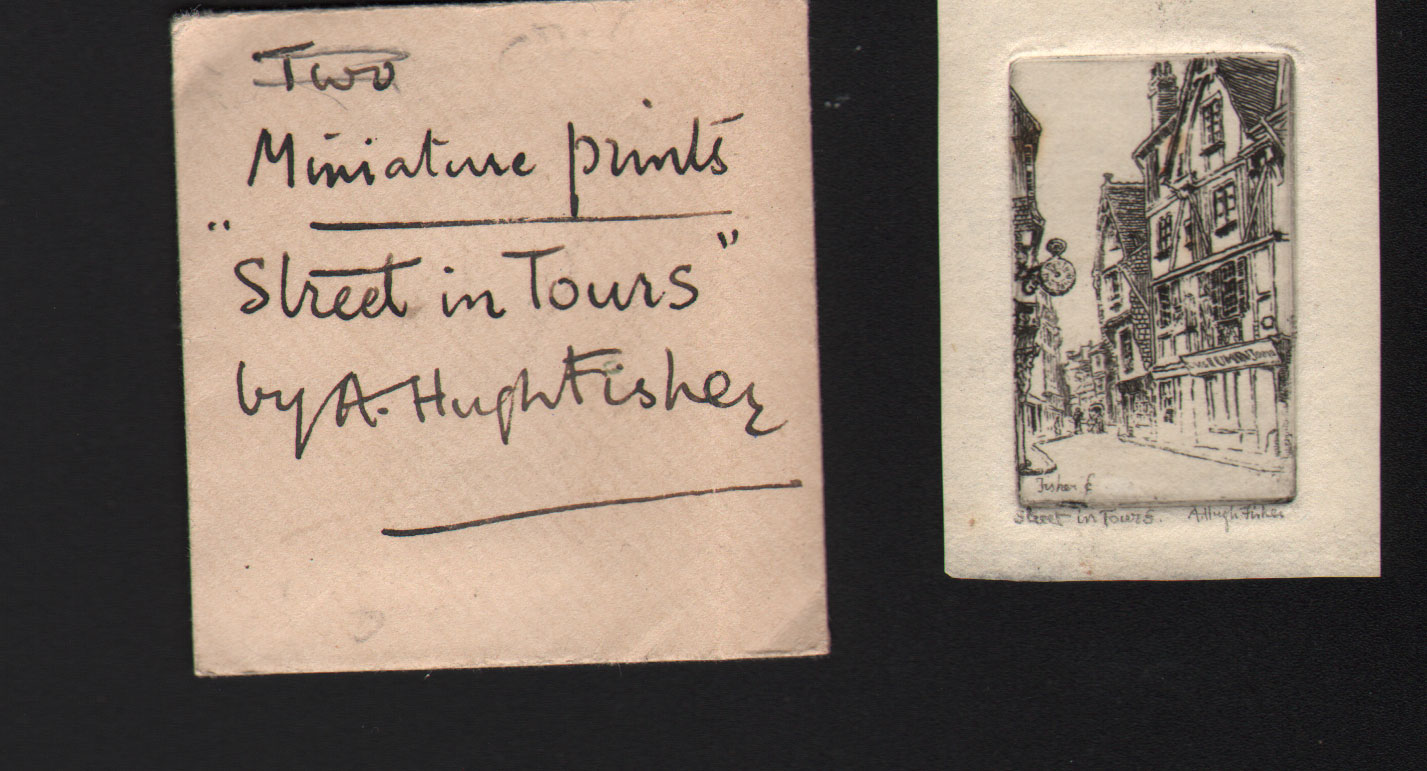 Two
Miniature prints
"Street in Tours"
by A. Hugh Fisher
Fisher f
Street in Tours. A Hugh Fisher